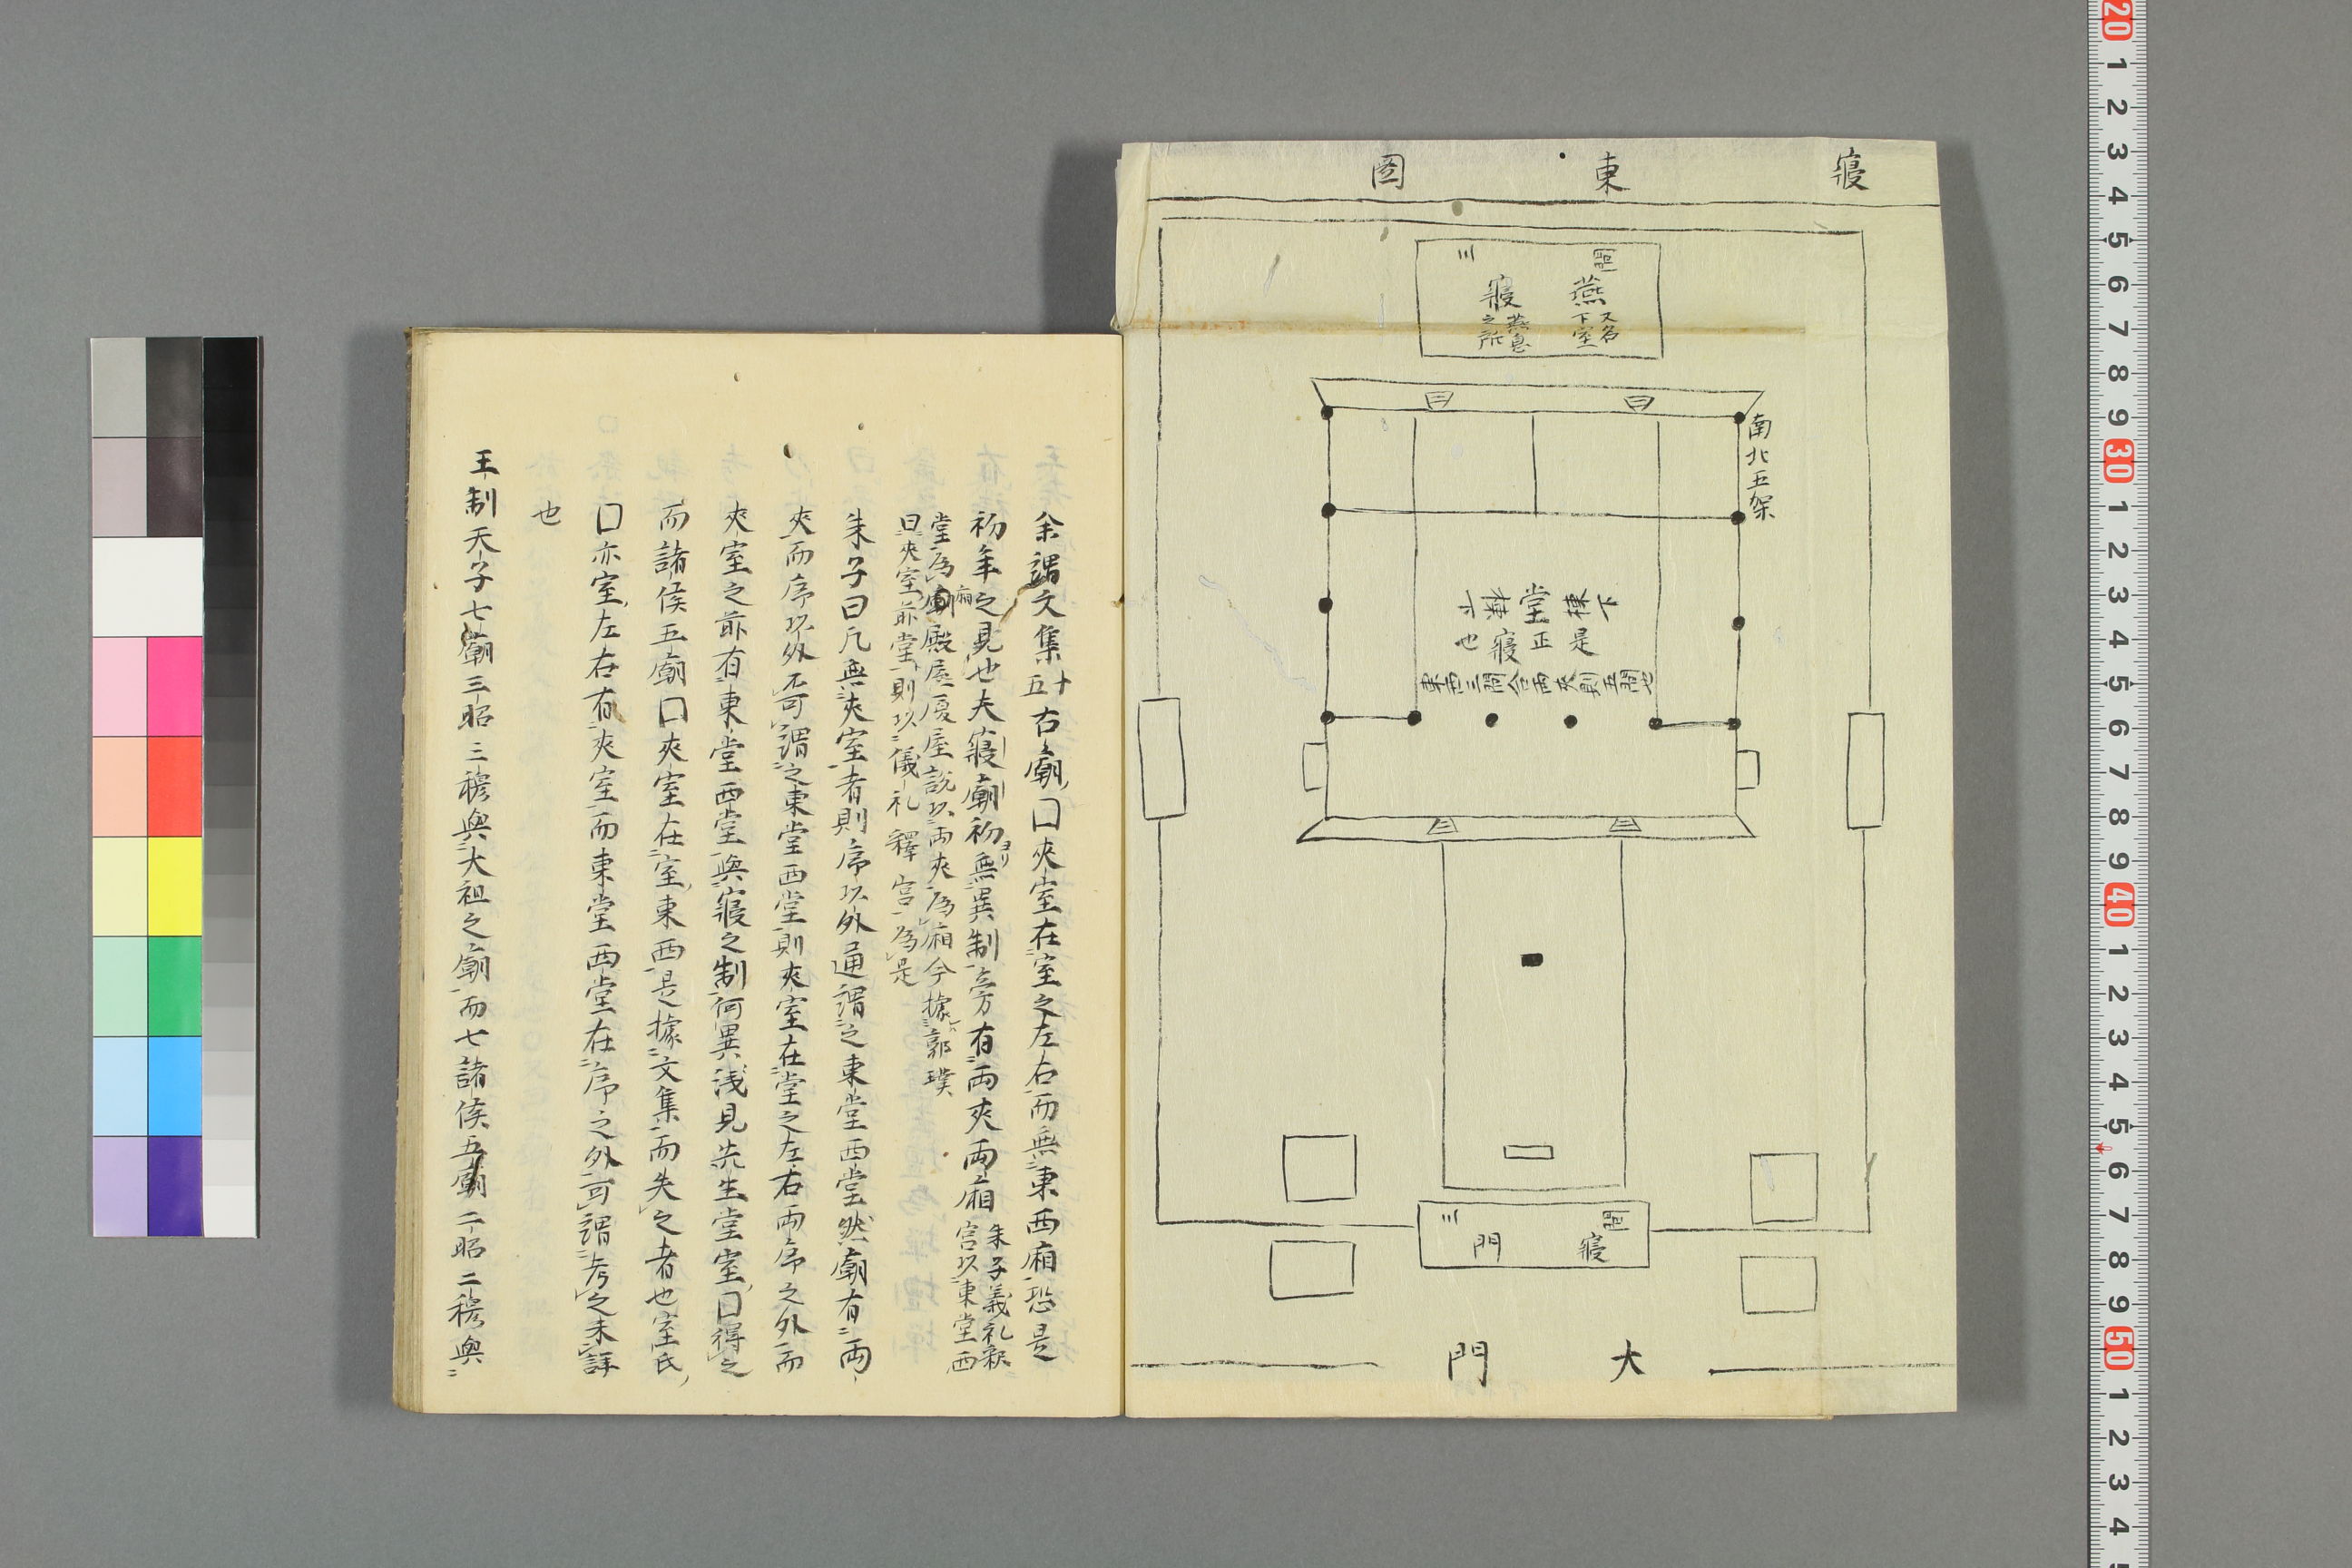 寢東圖
燕又名下室
寢燕息之所
南北五架
下棟堂棟下
是正寢也
東西三間合両夾則五間也
寢門
大門
余謂文集十五古廟囗夾室在室之左右而無東西廂恐是
初年之見也夫寢廟初ヨリ無異制立方有両夾両廂朱子義礼釈宮以東堂西
堂為廟廂殿屋厦屋説以両夾為廂今據郭璞
曰夾室前堂則以儀礼釋宮為是
朱子曰凡無夾室者則序以外通謂之東堂西堂然廟有両
夾而序以外不可謂之東堂西堂則夾室在堂之左右両序之外而
夾室之前有東堂西堂與寢之制何異浅見先生堂室囗得之
而諸侯五廟囗夾室在室東西是據文集而失之者也室氏
囗亦室左右有夾室而東堂西堂在序之外可謂考之未詳
也
王制天子七廟三昭三穆與大祖之廟而七諸侯五廟二昭二穆與